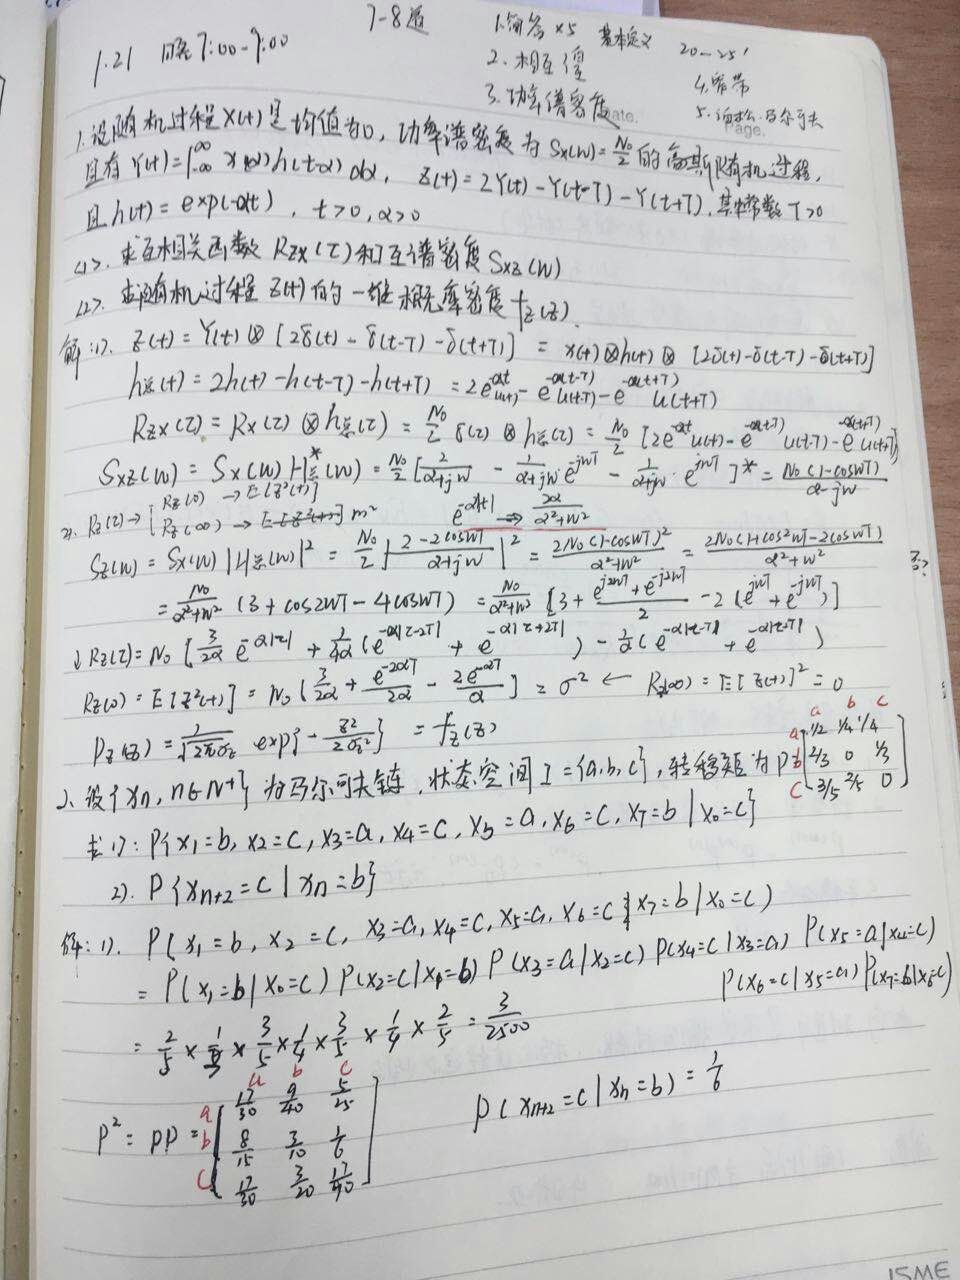 1.21 晚 7:00-9:00
7-8道
1.简答 ×5 基本定义 20-25'
2. 相互信
3. 功率谱密度
4.窄带
5. 泊松.马尔可夫
ate.
Page.
1.设随机过程X(t)是均值为0, 功率谱密度为Sx(w)=N₀/2的高斯随机过程,
且有 Y(t)=∫_{-∞}^{∞} x(α)h(t-α)dα, Z(t)=2Y(t)-Y(t-T)-Y(t+T), 其中常数T>0
且h(t)=exp(-αt), t>0,α>0
<1>. 求互相关函数 Rzx(τ)和互谱密度Sxz(w)
<2>. 求随机过程 Z(t)的一维概率密度f_z(z).
解:1). Z(t)=Y(t)⊗[2δ(t)-δ(t-T)-δ(t+T)] = x(t)⊗h(t)⊗[2δ(t)-δ(t-T)-δ(t+T)]
h总(t)=2h(t)-h(t-T)-h(t+T)=2e^{-αt}u(t)-e^{-α(t-T)}u(t-T)-e^{-α(t+T)}u(t+T)
Rzx(τ)=Rx(τ)⊗h总(τ)=N₀/2 δ(τ)⊗h总(τ)=N₀/2 [2e^{-αt}u(t)-e^{-α(t-T)}u(t-T)-e^{-α(t+T)}u(t+T)]
Sxz(w)=Sx(w)H总*(w)=N₀/2[2/(α+jw) - 1/(α+jw) e^{-jwT} - 1/(α+jw)·e^{jwT}]*=N₀(1-coswT)/(α-jw)
2). Rz(τ)→[Rz(0)→E[Z²(t)]
Rz(∞)→ m²
e^{-α|t|} → 2α/(α²+w²)
Sz(w)=Sx(w)|H总(w)|²=N₀/2|(2-2coswT)/(α+jw)|²=2N₀(1-coswT)²/(α²+w²)=2N₀(1+cos²wT-2coswT)/(α²+w²)
=N₀/(α²+w²) (3+cos2wT-4coswT)=N₀/(α²+w²) [3+(e^{j2wT}+e^{-j2wT})/2-2(e^{jwT}+e^{-jwT})]
↓Rz(τ)=N₀[3/2α e^{-α|τ|}+1/4α(e^{-α|τ-2T|}+e^{-α|τ+2T|})-1/α(e^{-α|τ-T|}+e^{-α|τ-T|})
Rz(0)=E[Z²(t)]=N₀[3/2α+e^{-2αT}/2α-2e^{-αT}/α]=σ² ← Rz(∞)=E[Z(t)]²=0
Pz(z)=1/√2πσz exp{-z²/2σz²}=f_z(z)
2. 设{Xn,n∈N⁺}为马尔可夫链, 状态空间I={a,b,c},转移矩为P=
a b c
a 1/2 1/4 1/4
b 2/3 0 1/3
c 3/5 2/5 0
求1): P{x1=b, x2=c, x3=a, x4=c, x5=a, x6=c, x7=b|x0=c}
2). P{xn+2=c|xn=b}
解:1). P(x1=b, x2=c, x3=a, x4=c, x5=a, x6=c, x7=b|x0=c)
=P(x1=b|x0=c)P(x2=c|x1=b)P(x3=a|x2=c)P(x4=c|x3=a) P(x5=a|x4=c)
P(x6=c|x5=a)P(x7=b|x6=c)
=2/5×1/3×3/5×1/4×3/5×1/4×2/5=3/2500
P²=PP=
a b c
a 17/30 9/40 5/25
b 8/15 3/10 1/6
c 17/30 3/20 17/90
P(xn+2=c|xn=b)=1/6
ISME